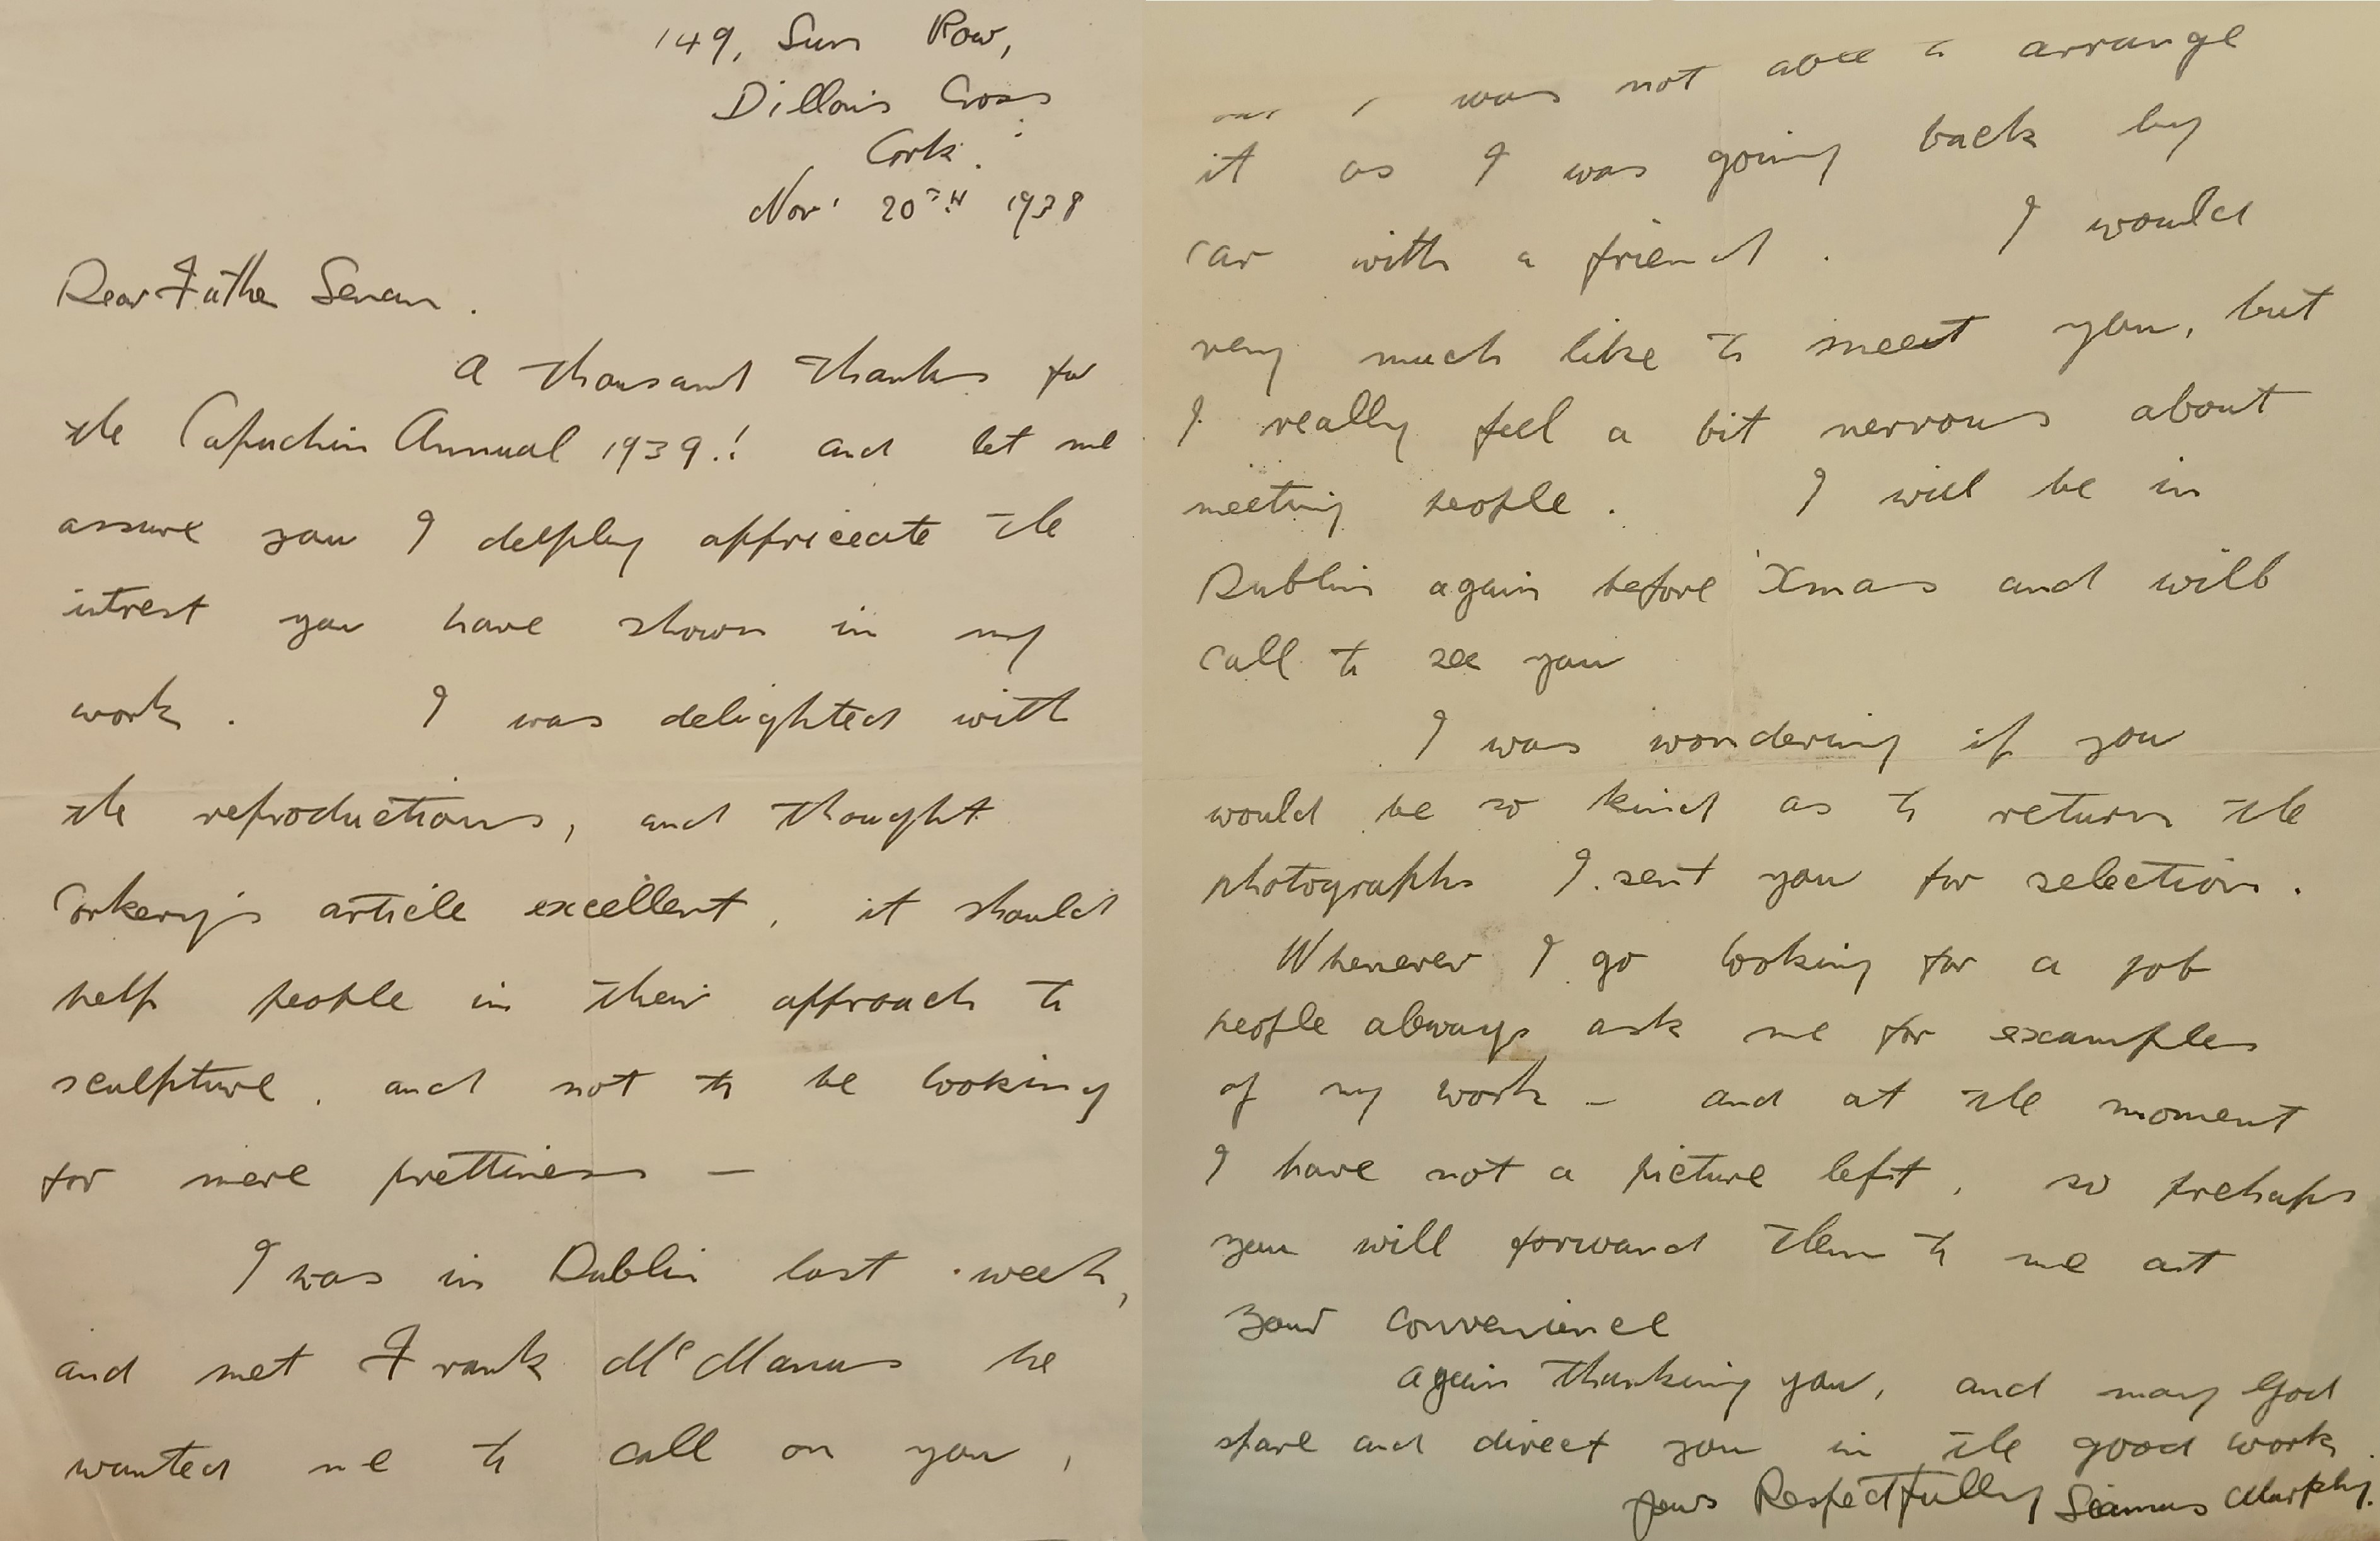 149, Sun Row,
Dillon's Cross
Cork.
Nov' 20TH 1938
Dear Father Senan.
A thousand thanks for
the Capuchin Annual 1939!! and let me
assure you I deeply appriceate the
intrest you have shown in my
work. I was delighted with
the reproductions, and thought
Corkery's article excellent, it should
help people in their approach to
sculpture, and not to be looking
for mere prettiness —
I was in Dublin last week,
and met Frank McManus he
wanted me to call on you,
I was not able to arrange
it as I was going back by
car with a friend. I would
very much like to meet you, but
I really feel a bit nervous about
meeting people. I will be in
Dublin again before Xmas and will
call to see you
I was wondering if you
would be so kind as to return the
photographs I sent you for selection.
Whenever I go looking for a job
people always ask me for examples
of my work — and at the moment
I have not a picture left, so prehaps
you will forward them to me at
your convenience
again thanking you, and may God
spare and direct you in the good work
yours Respectfully Séamus Murphy.